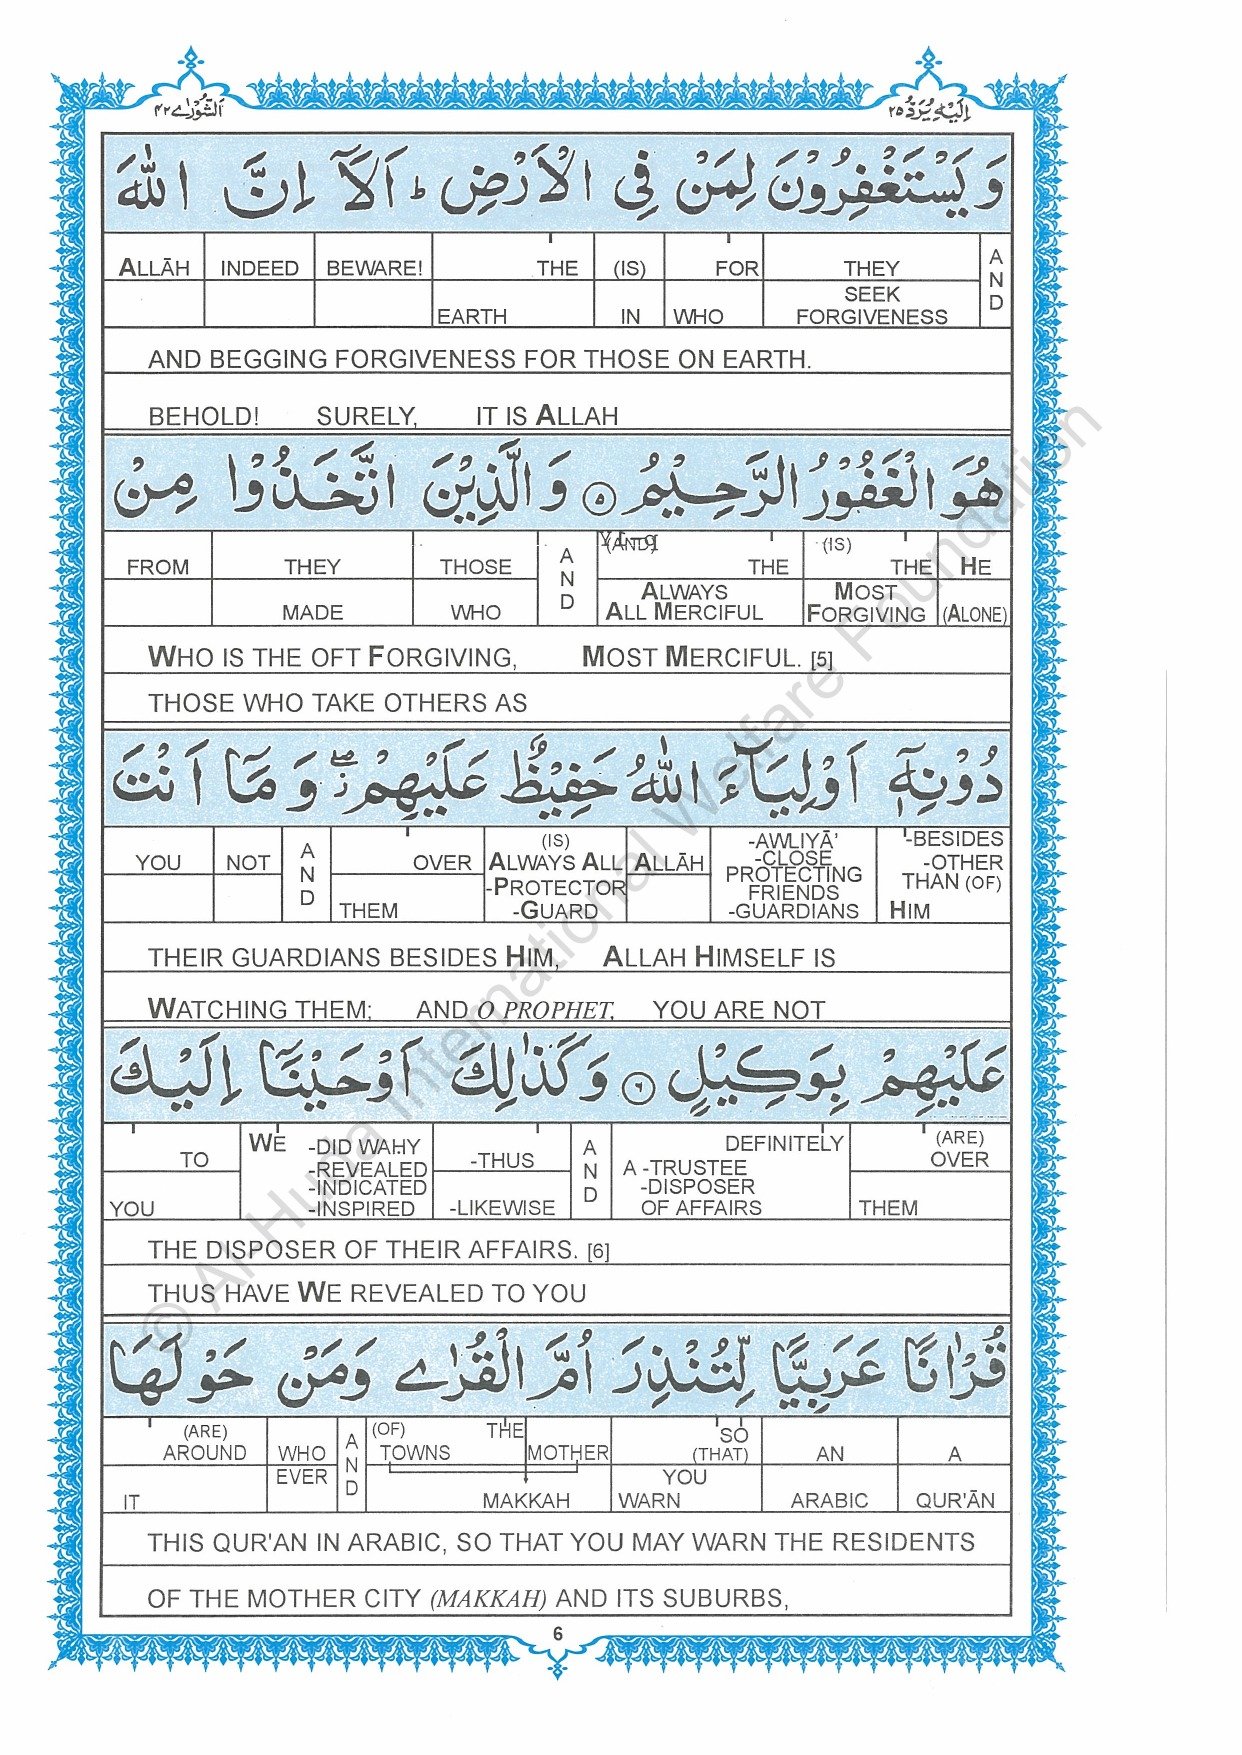 الشورٰے ٤٢
اِلَيْهِ يُرَدُّ ٢٥
وَ يَسْتَغْفِرُوْنَ لِمَنْ فِى الْاَرْضِ ؕ اَلَآ اِنَّ اللّٰهَ
ALLĀH INDEED BEWARE! THE (IS) FOR THEY AND
EARTH IN WHO SEEK FORGIVENESS
AND BEGGING FORGIVENESS FOR THOSE ON EARTH.
BEHOLD! SURELY, IT IS ALLAH
هُوَ الْغَفُوْرُ الرَّحِيْمُ ۵ وَ الَّذِيْنَ اتَّخَذُوْا مِنْ
FROM THEY THOSE AND (AND) THE (IS) THE HE
MADE WHO ALWAYS ALL MERCIFUL MOST FORGIVING (ALONE)
WHO IS THE OFT FORGIVING, MOST MERCIFUL. [5]
THOSE WHO TAKE OTHERS AS
دُوْنِهٖٓ اَوْلِيَآءَ اللّٰهُ حَفِيْظٌ عَلَيْهِمْ ۖ وَ مَآ اَنْتَ
YOU NOT AND OVER (IS) ALWAYS ALL ALLĀH -AWLIYĀ' -CLOSE PROTECTING FRIENDS -GUARDIANS -BESIDES -OTHER THAN (OF)
THEM -PROTECTOR -GUARD HIM
THEIR GUARDIANS BESIDES HIM, ALLAH HIMSELF IS
WATCHING THEM; AND O PROPHET, YOU ARE NOT
عَلَيْهِمْ بِوَكِيْلٍ ۶ وَ كَذٰلِكَ اَوْحَيْنَآ اِلَيْكَ
TO WE -DID WAHY -REVEALED -INDICATED -INSPIRED -THUS AND DEFINITELY A -TRUSTEE -DISPOSER OF AFFAIRS (ARE) OVER
YOU -LIKEWISE THEM
THE DISPOSER OF THEIR AFFAIRS. [6]
THUS HAVE WE REVEALED TO YOU
قُرْاٰنًا عَرَبِيًّا لِّتُنْذِرَ اُمَّ الْقُرٰے وَمَنْ حَوْلَهَا
(ARE) AROUND WHO AND (OF) TOWNS THE MOTHER SO (THAT) AN A
IT EVER MAKKAH YOU WARN ARABIC QUR'ĀN
THIS QUR'AN IN ARABIC, SO THAT YOU MAY WARN THE RESIDENTS
OF THE MOTHER CITY (MAKKAH) AND ITS SUBURBS,
6
© Al-Huda International Welfare Foundation